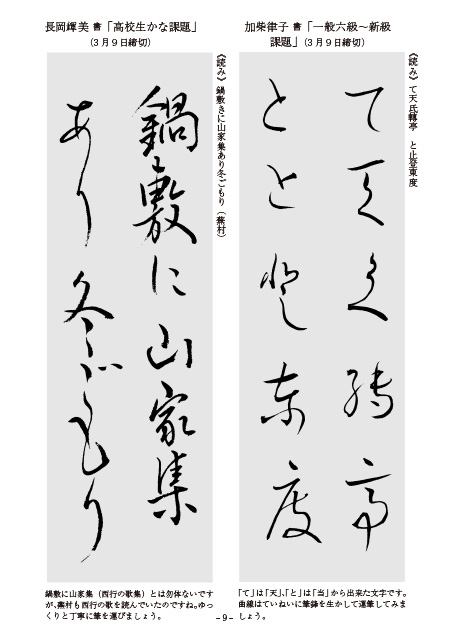 加柴律子 書「一般六級～新級
課題」（3月9日締切）
《読み》て天氐轉亭　と止登東度
て天氐轉亭
と止登東度
「て」は「天」、「と」は「当」から出来た文字です。
曲線はていねいに筆鋒を生かして運筆してみま
しょう。
長岡輝美 書「高校生かな課題」
（3月9日締切）
《読み》鍋敷きに山家集あり冬ごもり（蕪村）
鍋敷に山家集
あり冬ごもり
鍋敷に山家集（西行の歌集）とは勿体ないです
が、蕪村も西行の歌を読んでいたのですね。ゆっ
くりと丁寧に筆を運びましょう。
－9－